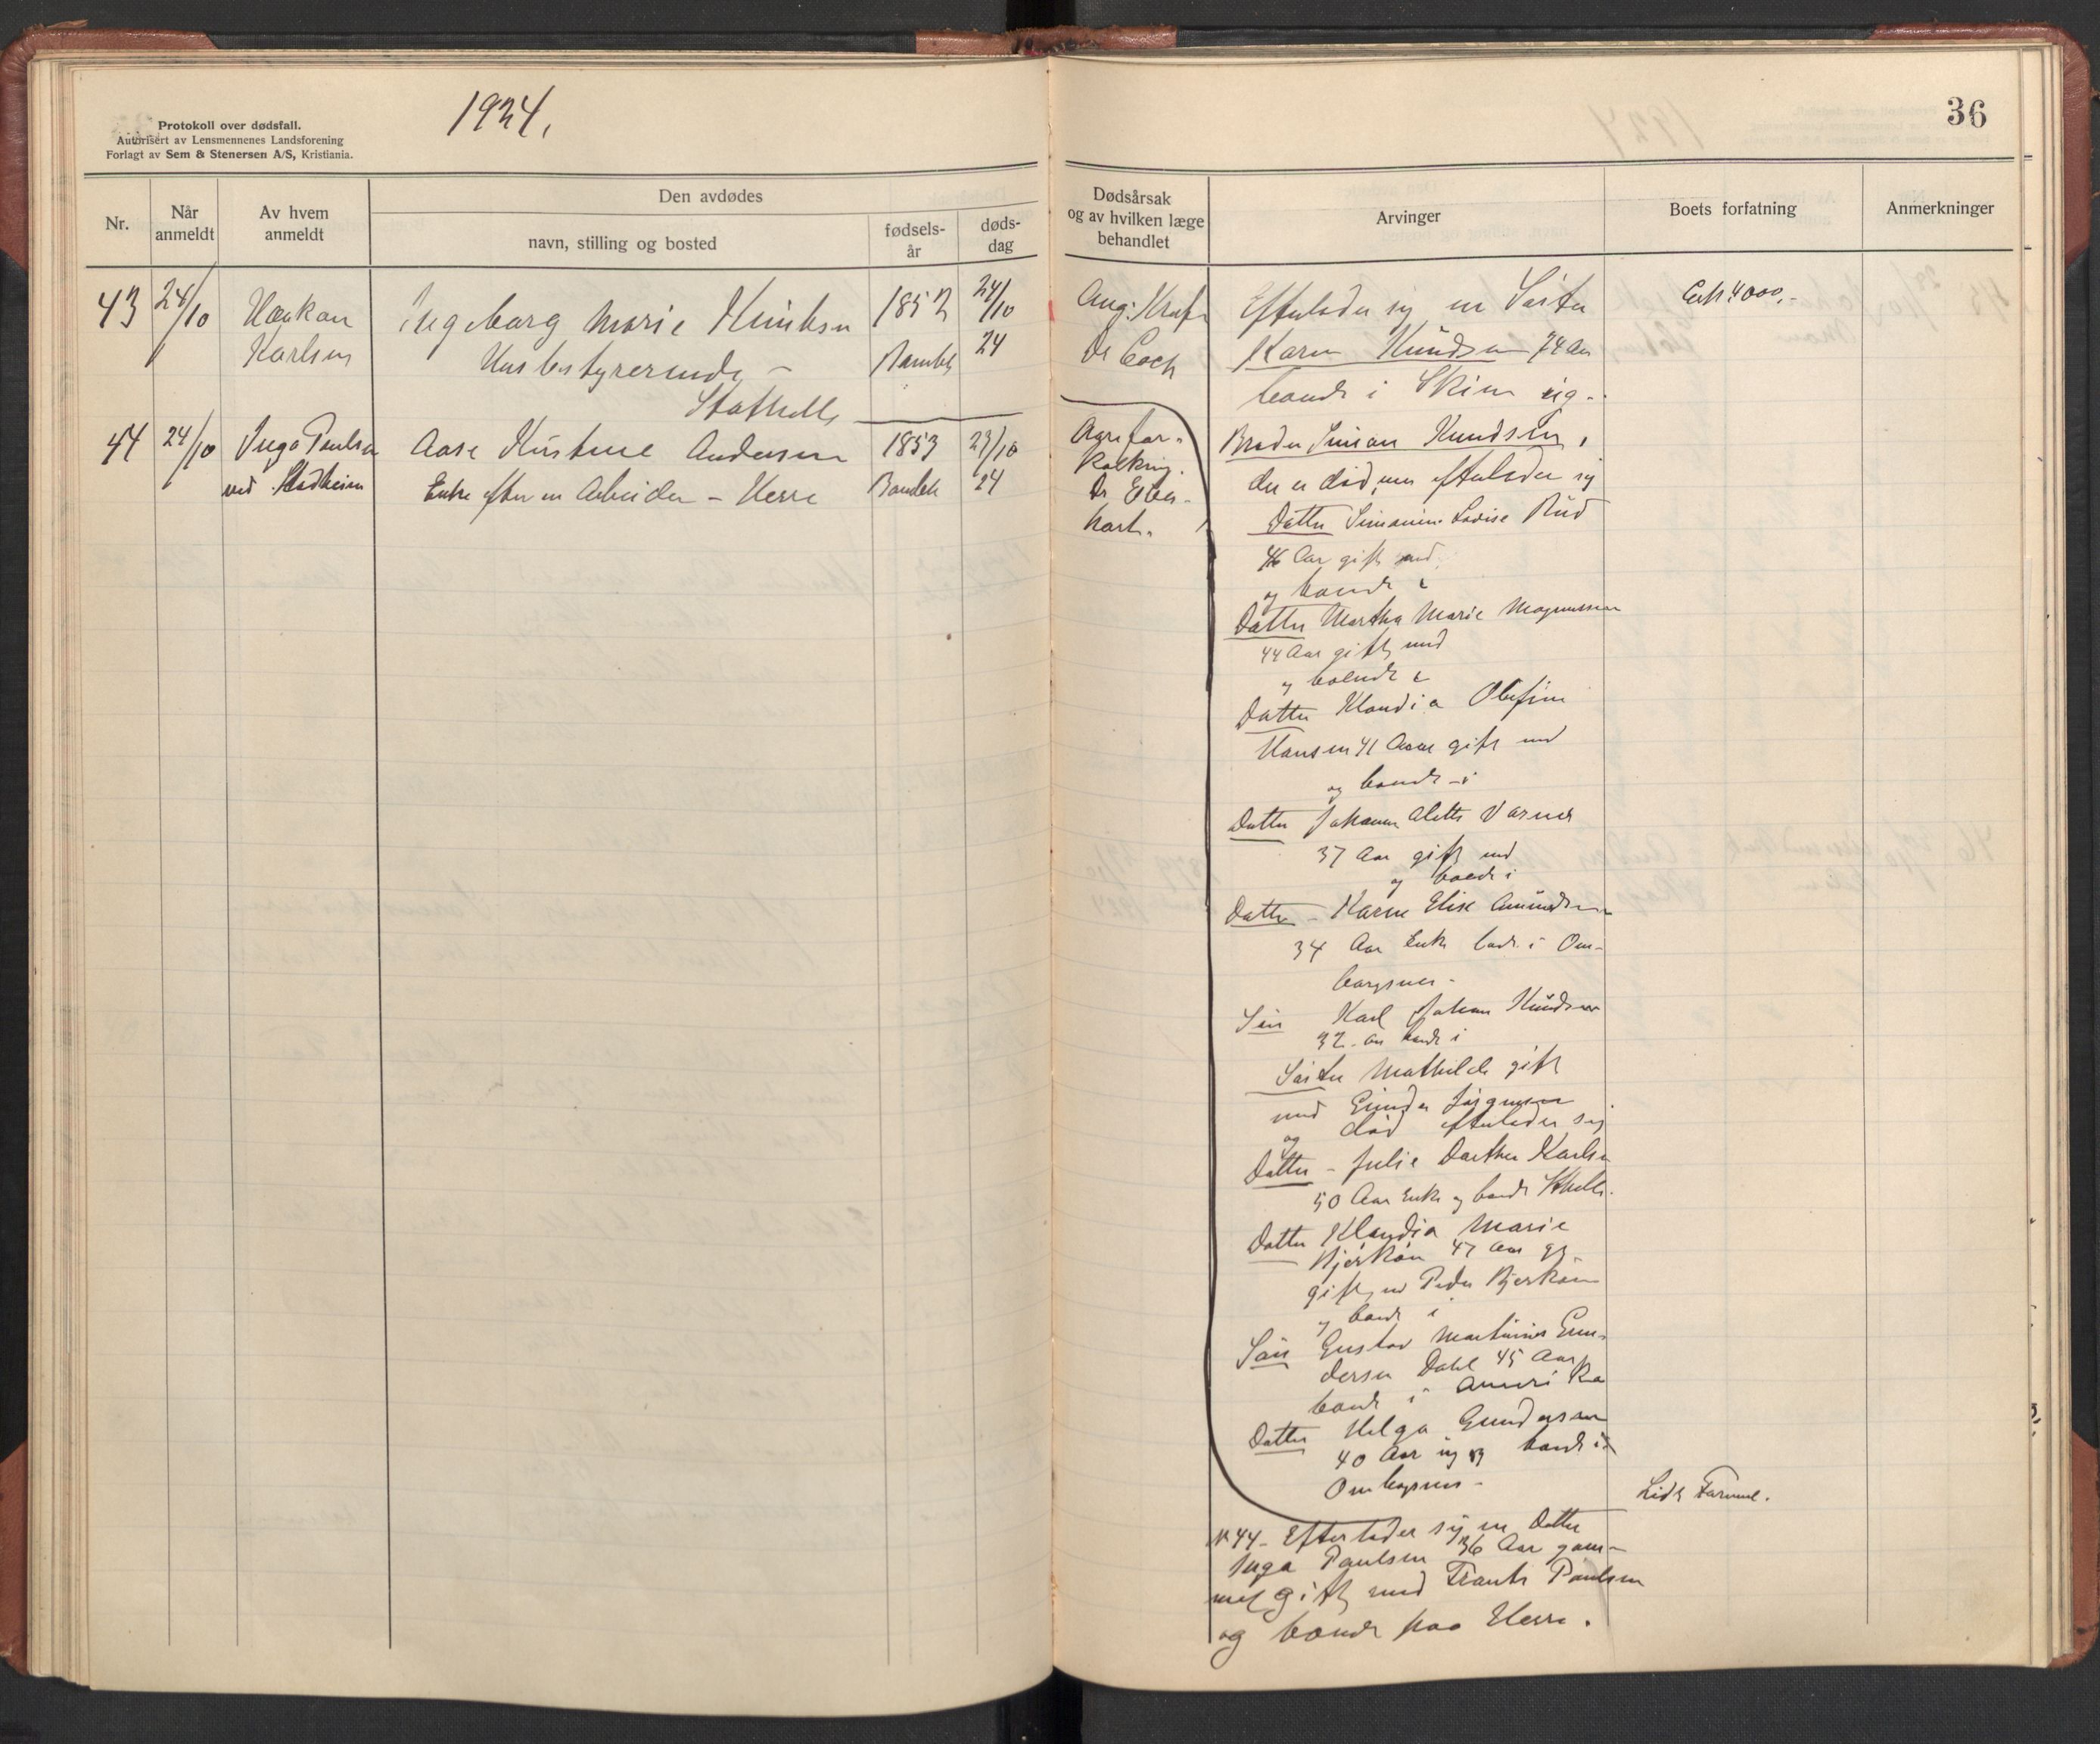 Protokoll over dødsfall.
Autorisert av Lensmennenes Landsforening
Forlagt av Sem & Stenersen A/S, Kristiania.
1924.
36
Nr.
Når anmeldt
Av hvem anmeldt
Den avdødes
navn, stilling og bosted
fødsels-år
døds-dag
Dødsårsak og av hvilken læge behandlet
Arvinger
Boets forfatning
Anmerkninger
43 24/10 Haakon Ingeborg Marie 1852 24/10
Karlsen Husbestyrerinde - Bamble 24
Stathelle
44 24/10 Inga Paulsen Aase Kirstine Andersen 1853 23/10
ved Enke efter en Arbeider - Herre Bamble 24
Dr Coch
Aarefor-
kalkning.
Dr Eber-
hart.
Efterlader sig en Søster
Karen Knudsen 74 Aar
boende i Skien ug.
Broder Simon Knudsen,
der er død, men efterlader sig
Datter Lovise Rud
46 Aar gift med
og boende i
Datter Martha Marie Magnussen
44 Aar gift med
og boende i
Datter Klaudia Olefine
Hansen 41 Aar gift med
og boende i
Datter Johanne Alette
37 Aar gift med
og boende i
Datter - Karen Elise Amundsen
34 Aar Enke boende i Om-
borgsnes -
Søn Karl Johan Knudsen
32 Aar boende i
Søster Mathilde gift
med Gunder Jørgensen
og død efterlader sig
Datter - Julie Dorthea Karlsen
50 Aar Enke og boende Sthelle.
Datter Klaudia Marie
Bjerkøen 47 Aar og
gift med Peder Bjerkøen
og boende i
Søn Gustav Martinius Gun-
dersen Dahl 45 Aar
boende i Amerika
Datter Helga Gundersen
40 Aar ug og boende i
Omborgsnes -
N 44 - Efterlader sig en Datter
Inga Paulsen 36 Aar gam-
mel gift med Frants Paulsen
og boende paa Herre.
Ca kr 4000,-
Lidt Formue.